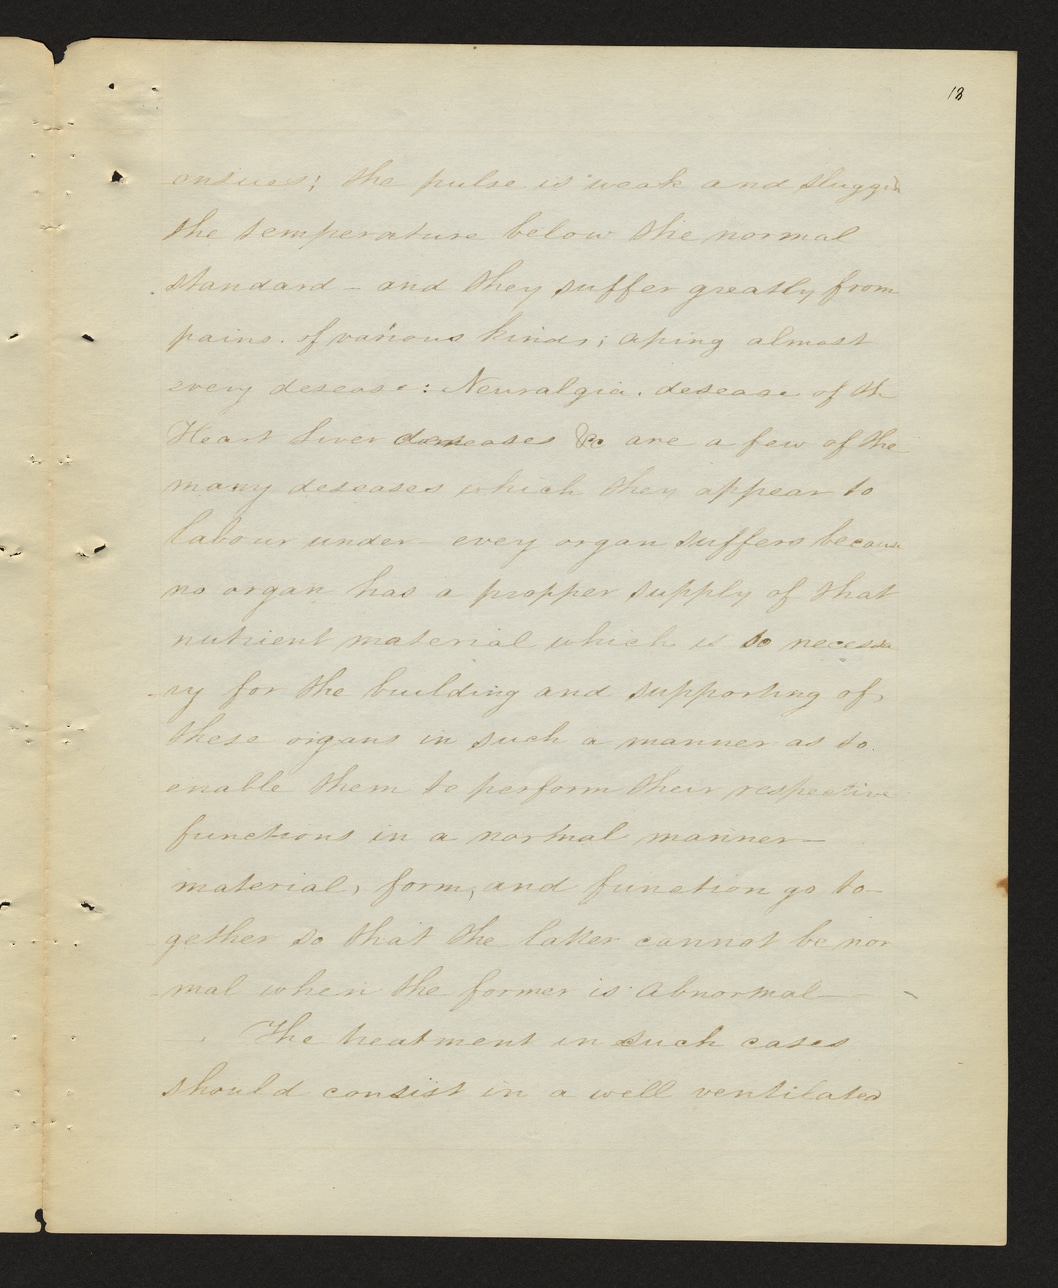 18
ensues; the pulse is weak and sluggish
the temperature below the normal
standard – and they suffer greatly from
pains. of various kinds; aping almost
every desease: Neuralgia. desease of the
Heart Liver deseases &c are a few of the
many deseases which they appear to
labour under – every organ suffers because
no organ has a propper supply of that
nutrient material which is so necessa
ry for the building and supporting of,
these organs in such a manner as to
enable them to perform their respective
functions in a normal manner –
material, form, and function go to–
gether so that the latter cannot be nor
mal when the former is Abnormal –
The treatment in such cases
should consist in a well ventilated